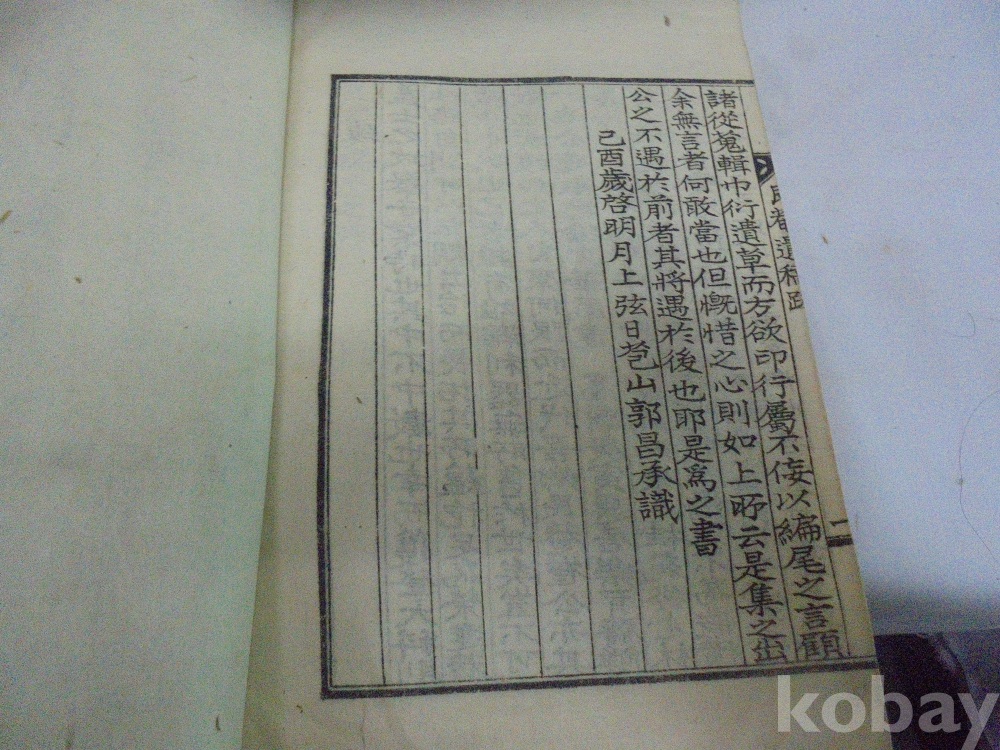 遺稿跋
二
諸從蒐輯巾衍遺草而方欲印行屬不佞以編尾之言顧
余無言者何敢當也但慨惜之心則如上所云是集之出
公之不遇於前者其將遇於後也耶是爲之書
己酉歲啓明月上弦日苞山郭昌承識
kobay